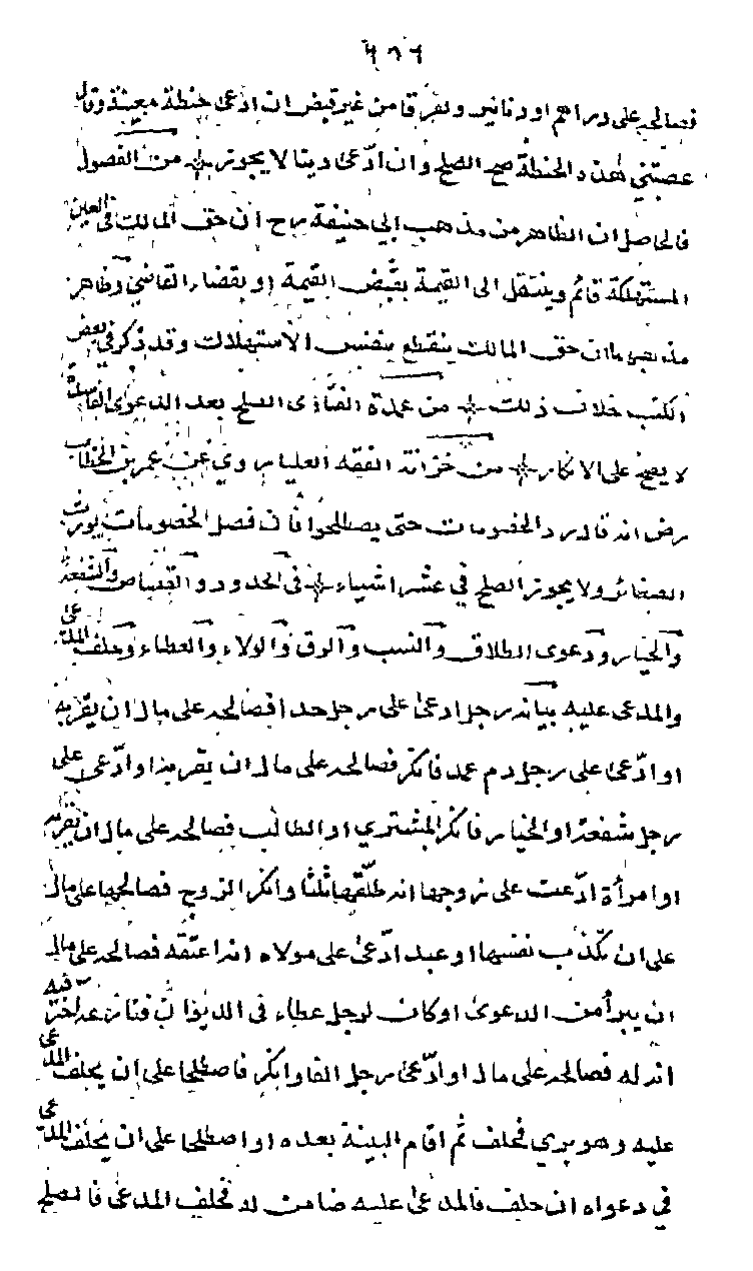 فصالحه على دراهم او دنانير وتفرقا من غير قبض ان ادعى حنطة معينة وقال
غصبتني هذه الحنطة صح الصلح وان ادّعى دينا لا يجوز من الفصول
فالحاصل ان الظاهر من مذهب ابي حنيفة رح ان حق المالك في العين
المستهلكة قائم وينتقل الى القيمة بقبض القيمة او بقضاء القاضي وظاهر
مذهبهما ان حق المالك ينقطع بنفس الاستهلاك وقد ذكر في بعض
الكتب خلاف ذلك من عمدة الفتاوى الصلح بعد الدعوى الفاسدة
لا يصح على الانكار من خزانة الفقه العليا روي عن عمر بن الخطاب
رض انه قال رد الخصومات حتى يصطلحوا فان فصل الخصومات يورث
الضغائن ولا يجوز الصلح في عشر اشياء في الحدود والقصاص والشفعة
والخيار ودعوى الطلاق والنسب والرق والولاء والعطاء وحلف المدعى
والمدعى عليه بيانه رجل ادعى على رجل حدا فصالحه على مال ان يقر به
او ادّعى على رجل دم عمد فانكر فصالحه على مال ان يقر بذا او ادّعى على
رجل شفعة او الخيار فانكر المشتري او الطالب فصالحه على مال ان يقر به
او امرأة ادّعت على زوجها انه طلّقها ثلثا وانكر الزوج فصالحها على مال
على ان تكذب نفسها او عبد ادّعى على مولاه انه اعتقه فصالحه على مال
ان يبرأ من الدعوى او كان لرجل عطاء في الديوان فنازعه آخر فيه
انه له فصالحه على مال او ادّعى رجل الفا وانكر فاصطلحا على ان يحلف المدعى
عليه وهو بري فحلف ثم اقام البينة بعده او اصطلحا على ان يحلف المدعى
في دعواه ان حلف فالمدعى عليه ضامن له فحلف المدعى فالصلح